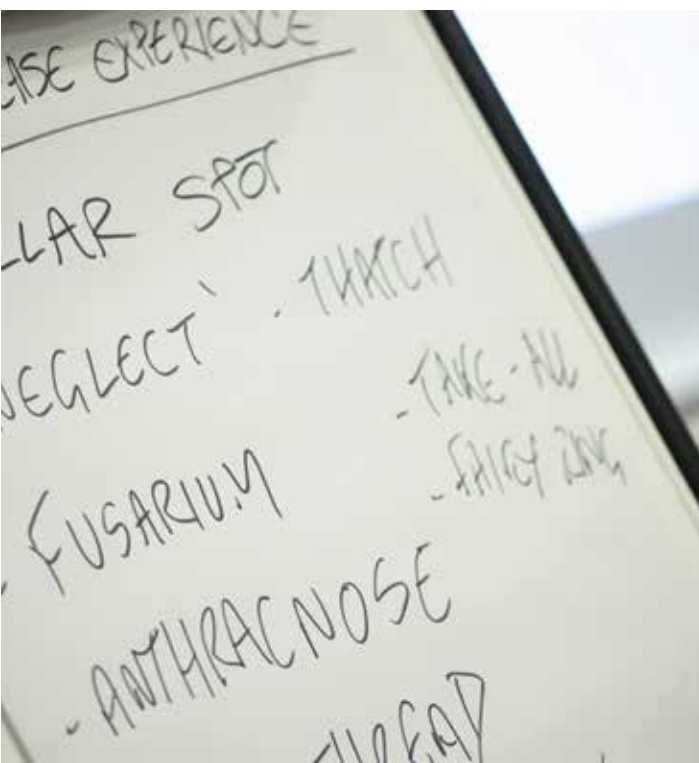 ASE EXPERIENCE
LLAR SPOT
NEGLECT' - THATCH
- TAKE-ALL
- FAIRY RING
- FUSARIUM
- ANTHRACNOSE
THREAD